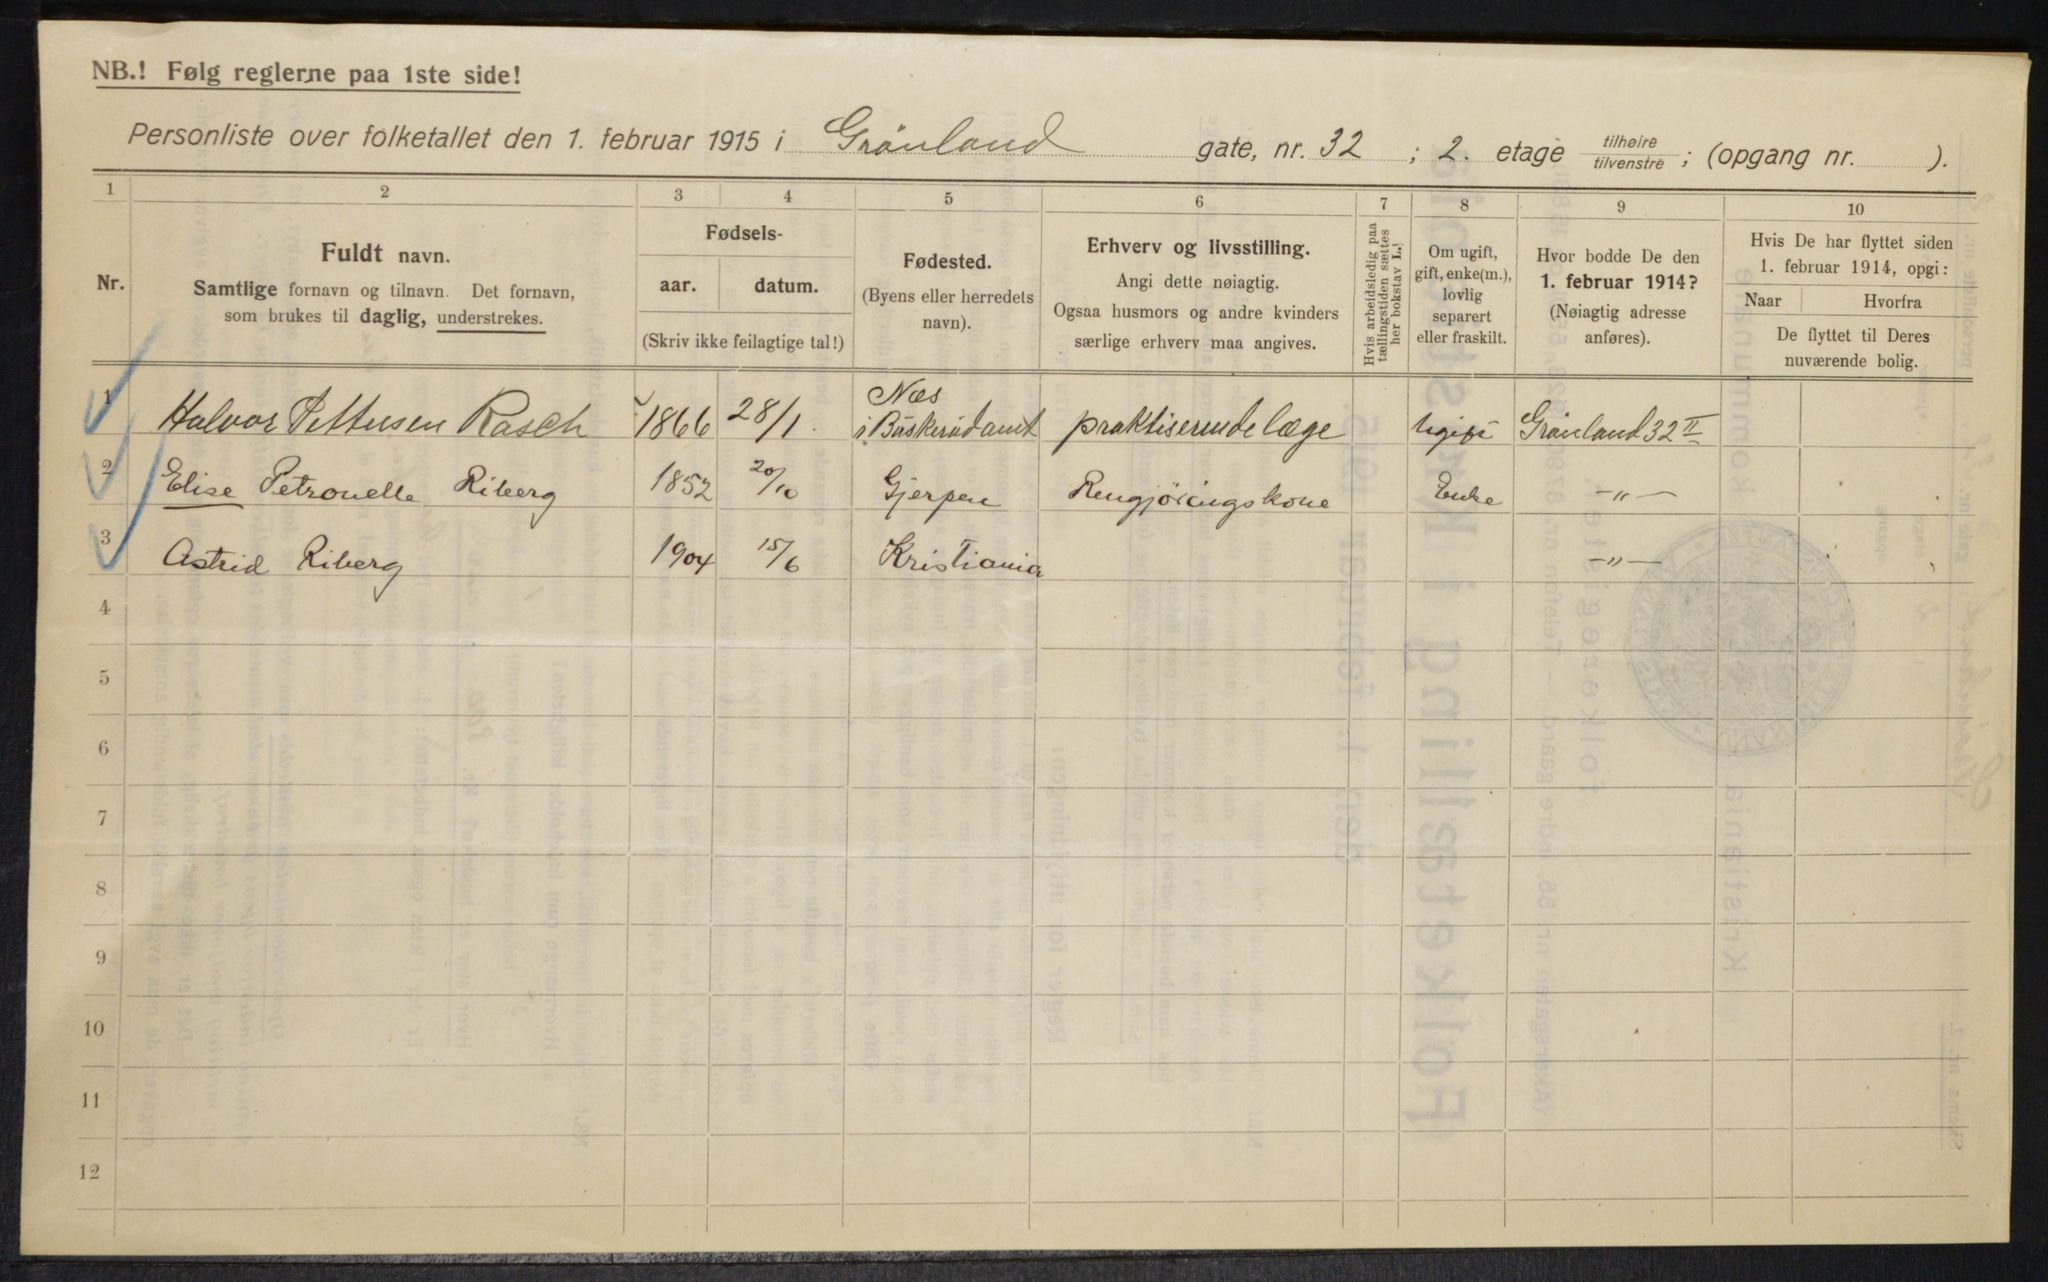 NB.! Følg reglerne paa 1ste side!
Personliste over folketallet den 1. februar 1915 i Grønland gate, nr. 32 ; 2. etage tilhøire tilvenstre ; (opgang nr. ).
1 2 3 4 5 6 7 8 9 10
Nr.
Fuldt navn.
Samtlige fornavn og tilnavn. Det fornavn,
som brukes til daglig, understrekes.
Fødsels-
aar. datum.
(Skriv ikke feilagtige tal!)
Fødested.
(Byens eller herredets
navn).
Erhverv og livsstilling.
Angi dette nøiagtig.
Ogsaa husmors og andre kvinders
særlige erhverv maa angives.
Hvis arbeidsledig paa
tællingstiden sættes
her bokstav L.!
Om ugift,
gift, enke(m.),
lovlig
separert
eller fraskilt.
Hvor bodde De den
1. februar 1914?
(Nøiagtig adresse
anføres).
Hvis De har flyttet siden
1. februar 1914, opgi:
Naar Hvorfra
De flyttet til Deres
nuværende bolig.
1 Halvor Pettersen Rasch 1866 28/1. Næs i Buskerud amt praktiserende læge Ugift Grønland 32 II
2 Elise Petronelle Riberg 1852 20/10 Gjerpen Rengjøringskone Enke -"-
3 Astrid Riberg 1904 15/6 Kristiania -"-
4
5
6
7
8
9
10
11
12